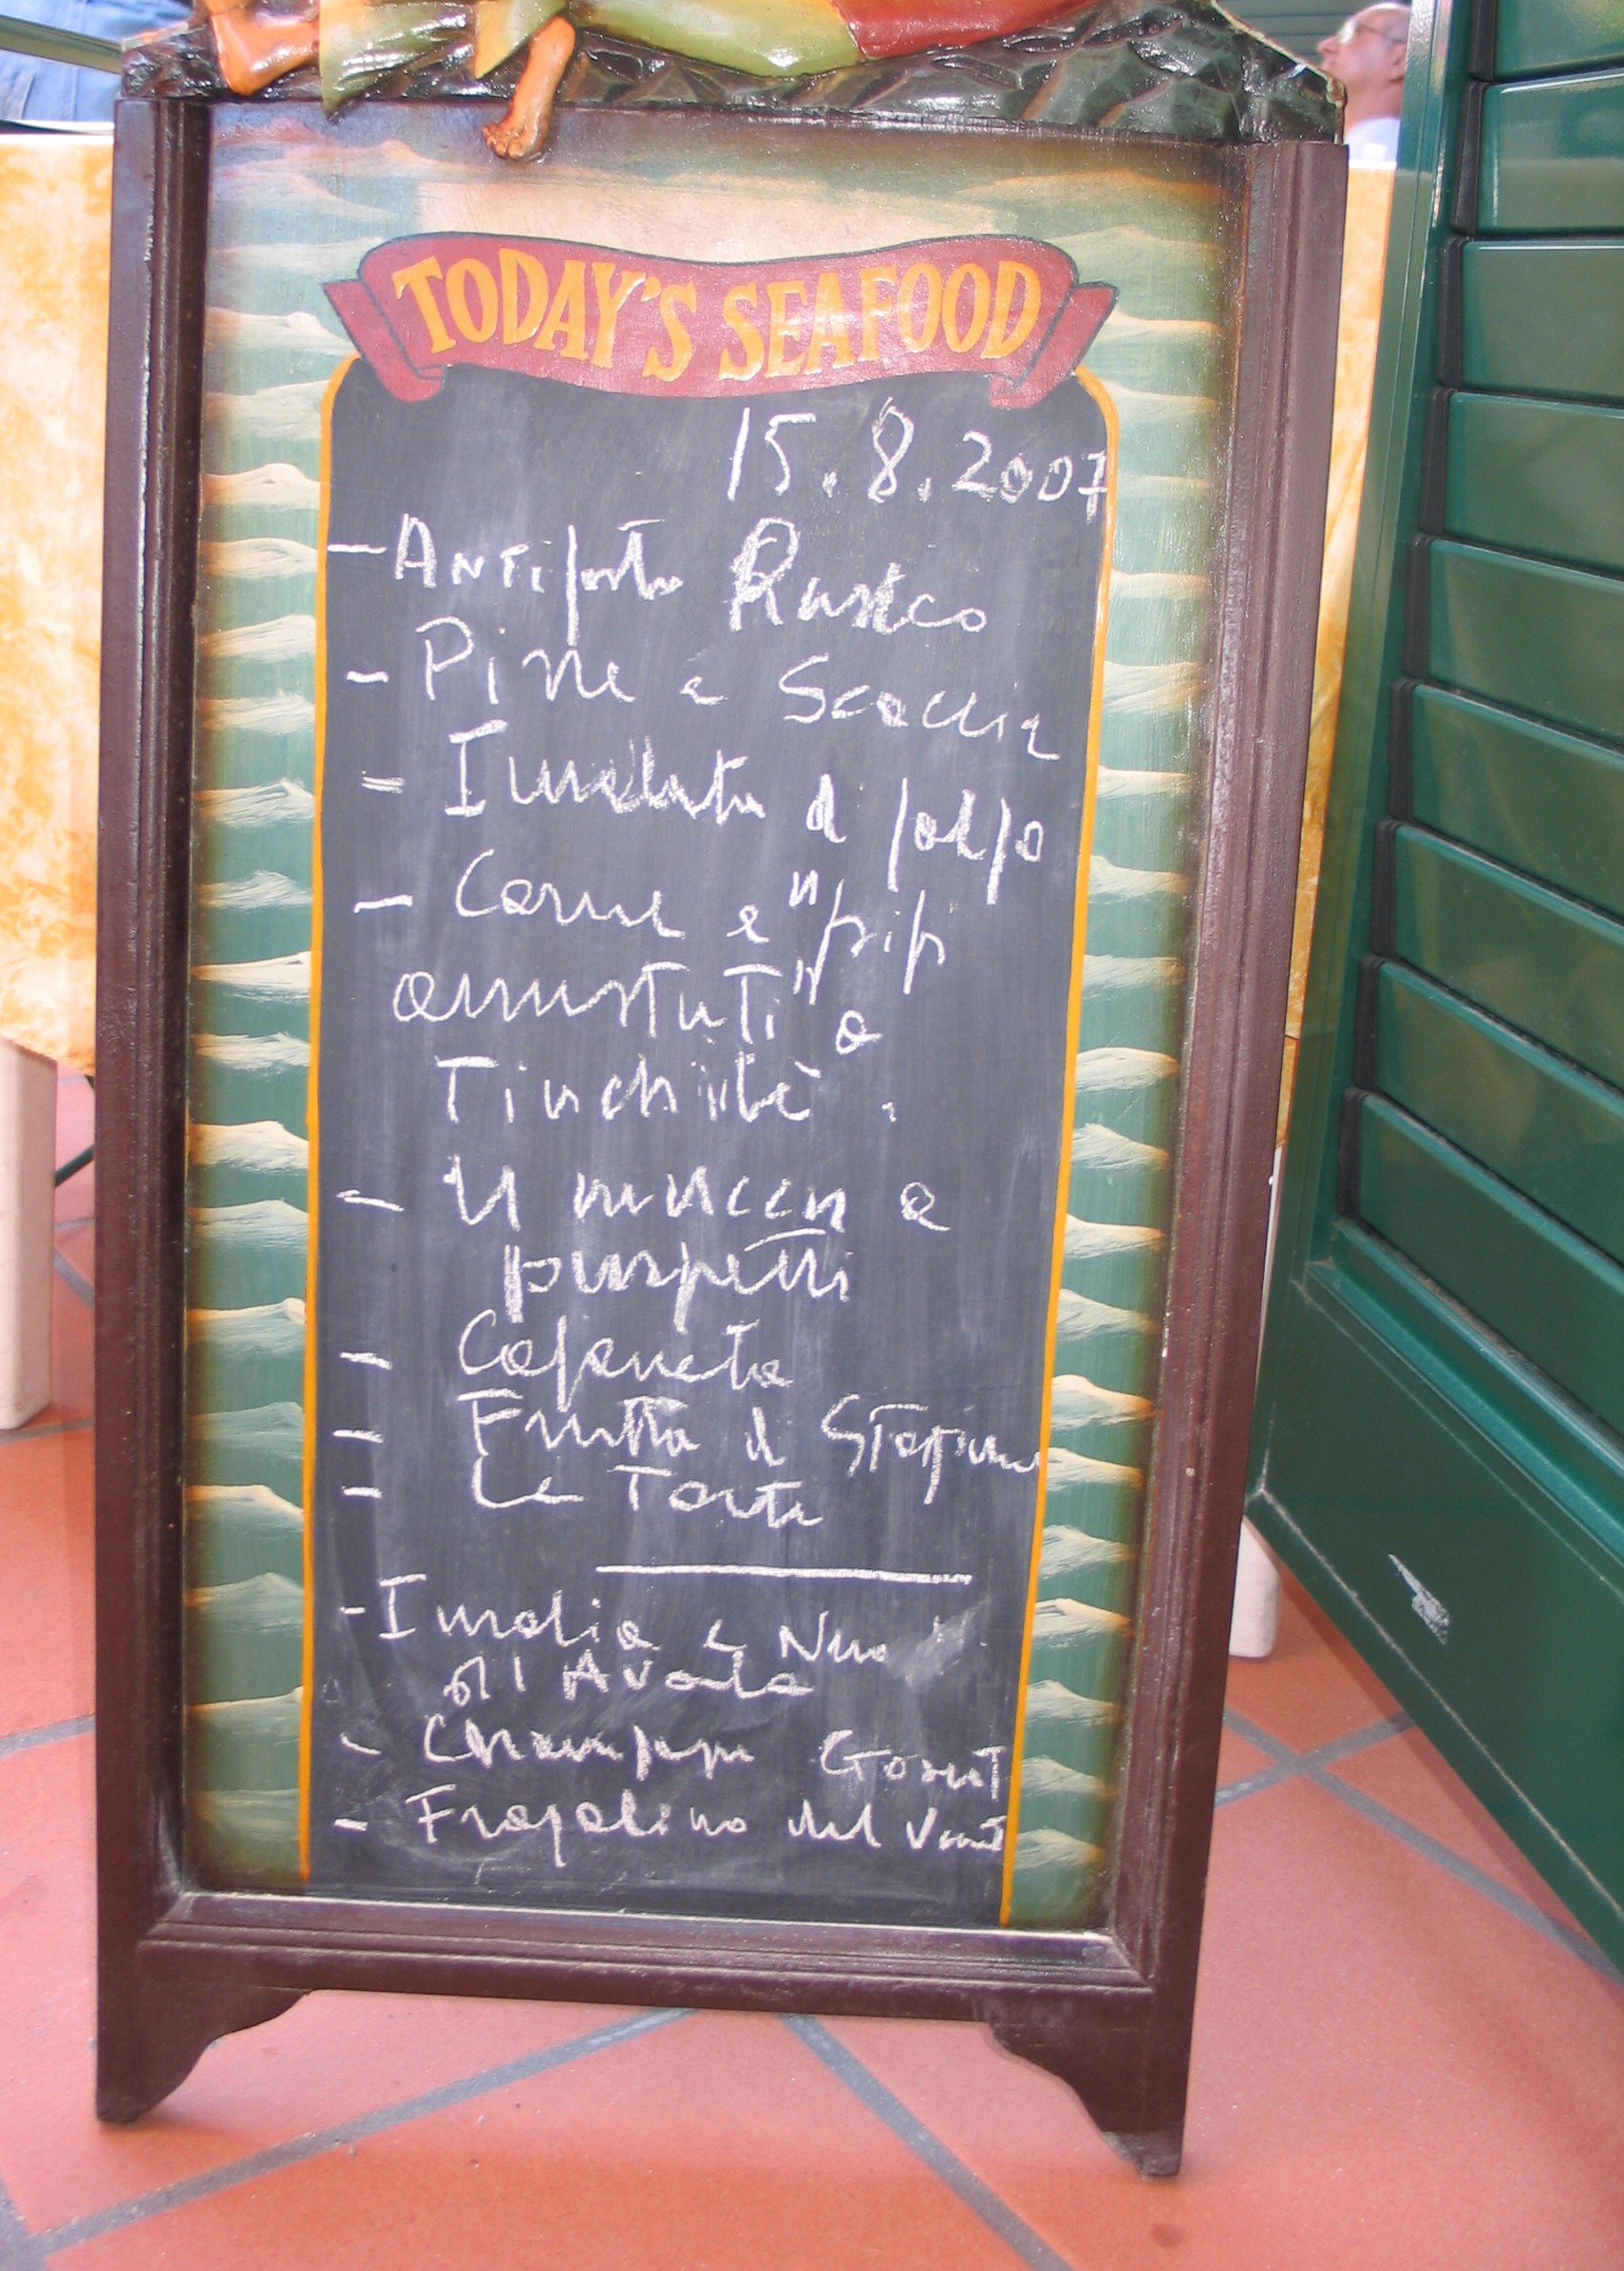 TODAY'S SEAFOOD
15.8.2007
- Antipasto Rustico
- Pizze e Scaccia
= Insalata di polpo
- Carne e "pipi
arrustuti" a
Tinchitè.
- U muccu e
purpetti
- Caponata
= Frutta di Stagione
= Le Torte
- Insolia e Nero
d'Avola
- Champagn
- Fragolino del